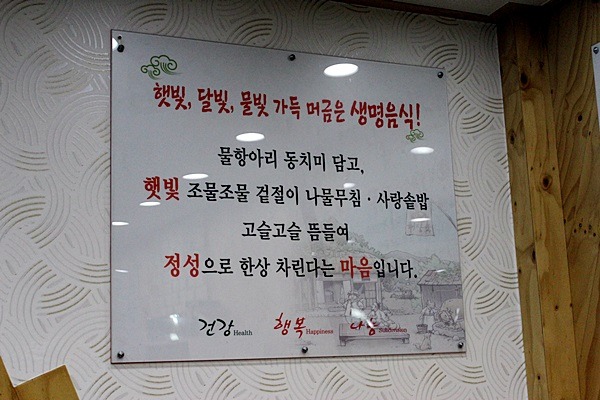 햇빛, 달빛, 물빛 가득 머금은 생명음식!
물항아리 동치미 담고,
햇빛 조물조물 겉절이 나물무침 · 사랑솥밥
고슬고슬 뜸들여
정성으로 한상 차린다는 마음입니다.
건강 Health 행복 Happiness 나눔 Subdivision